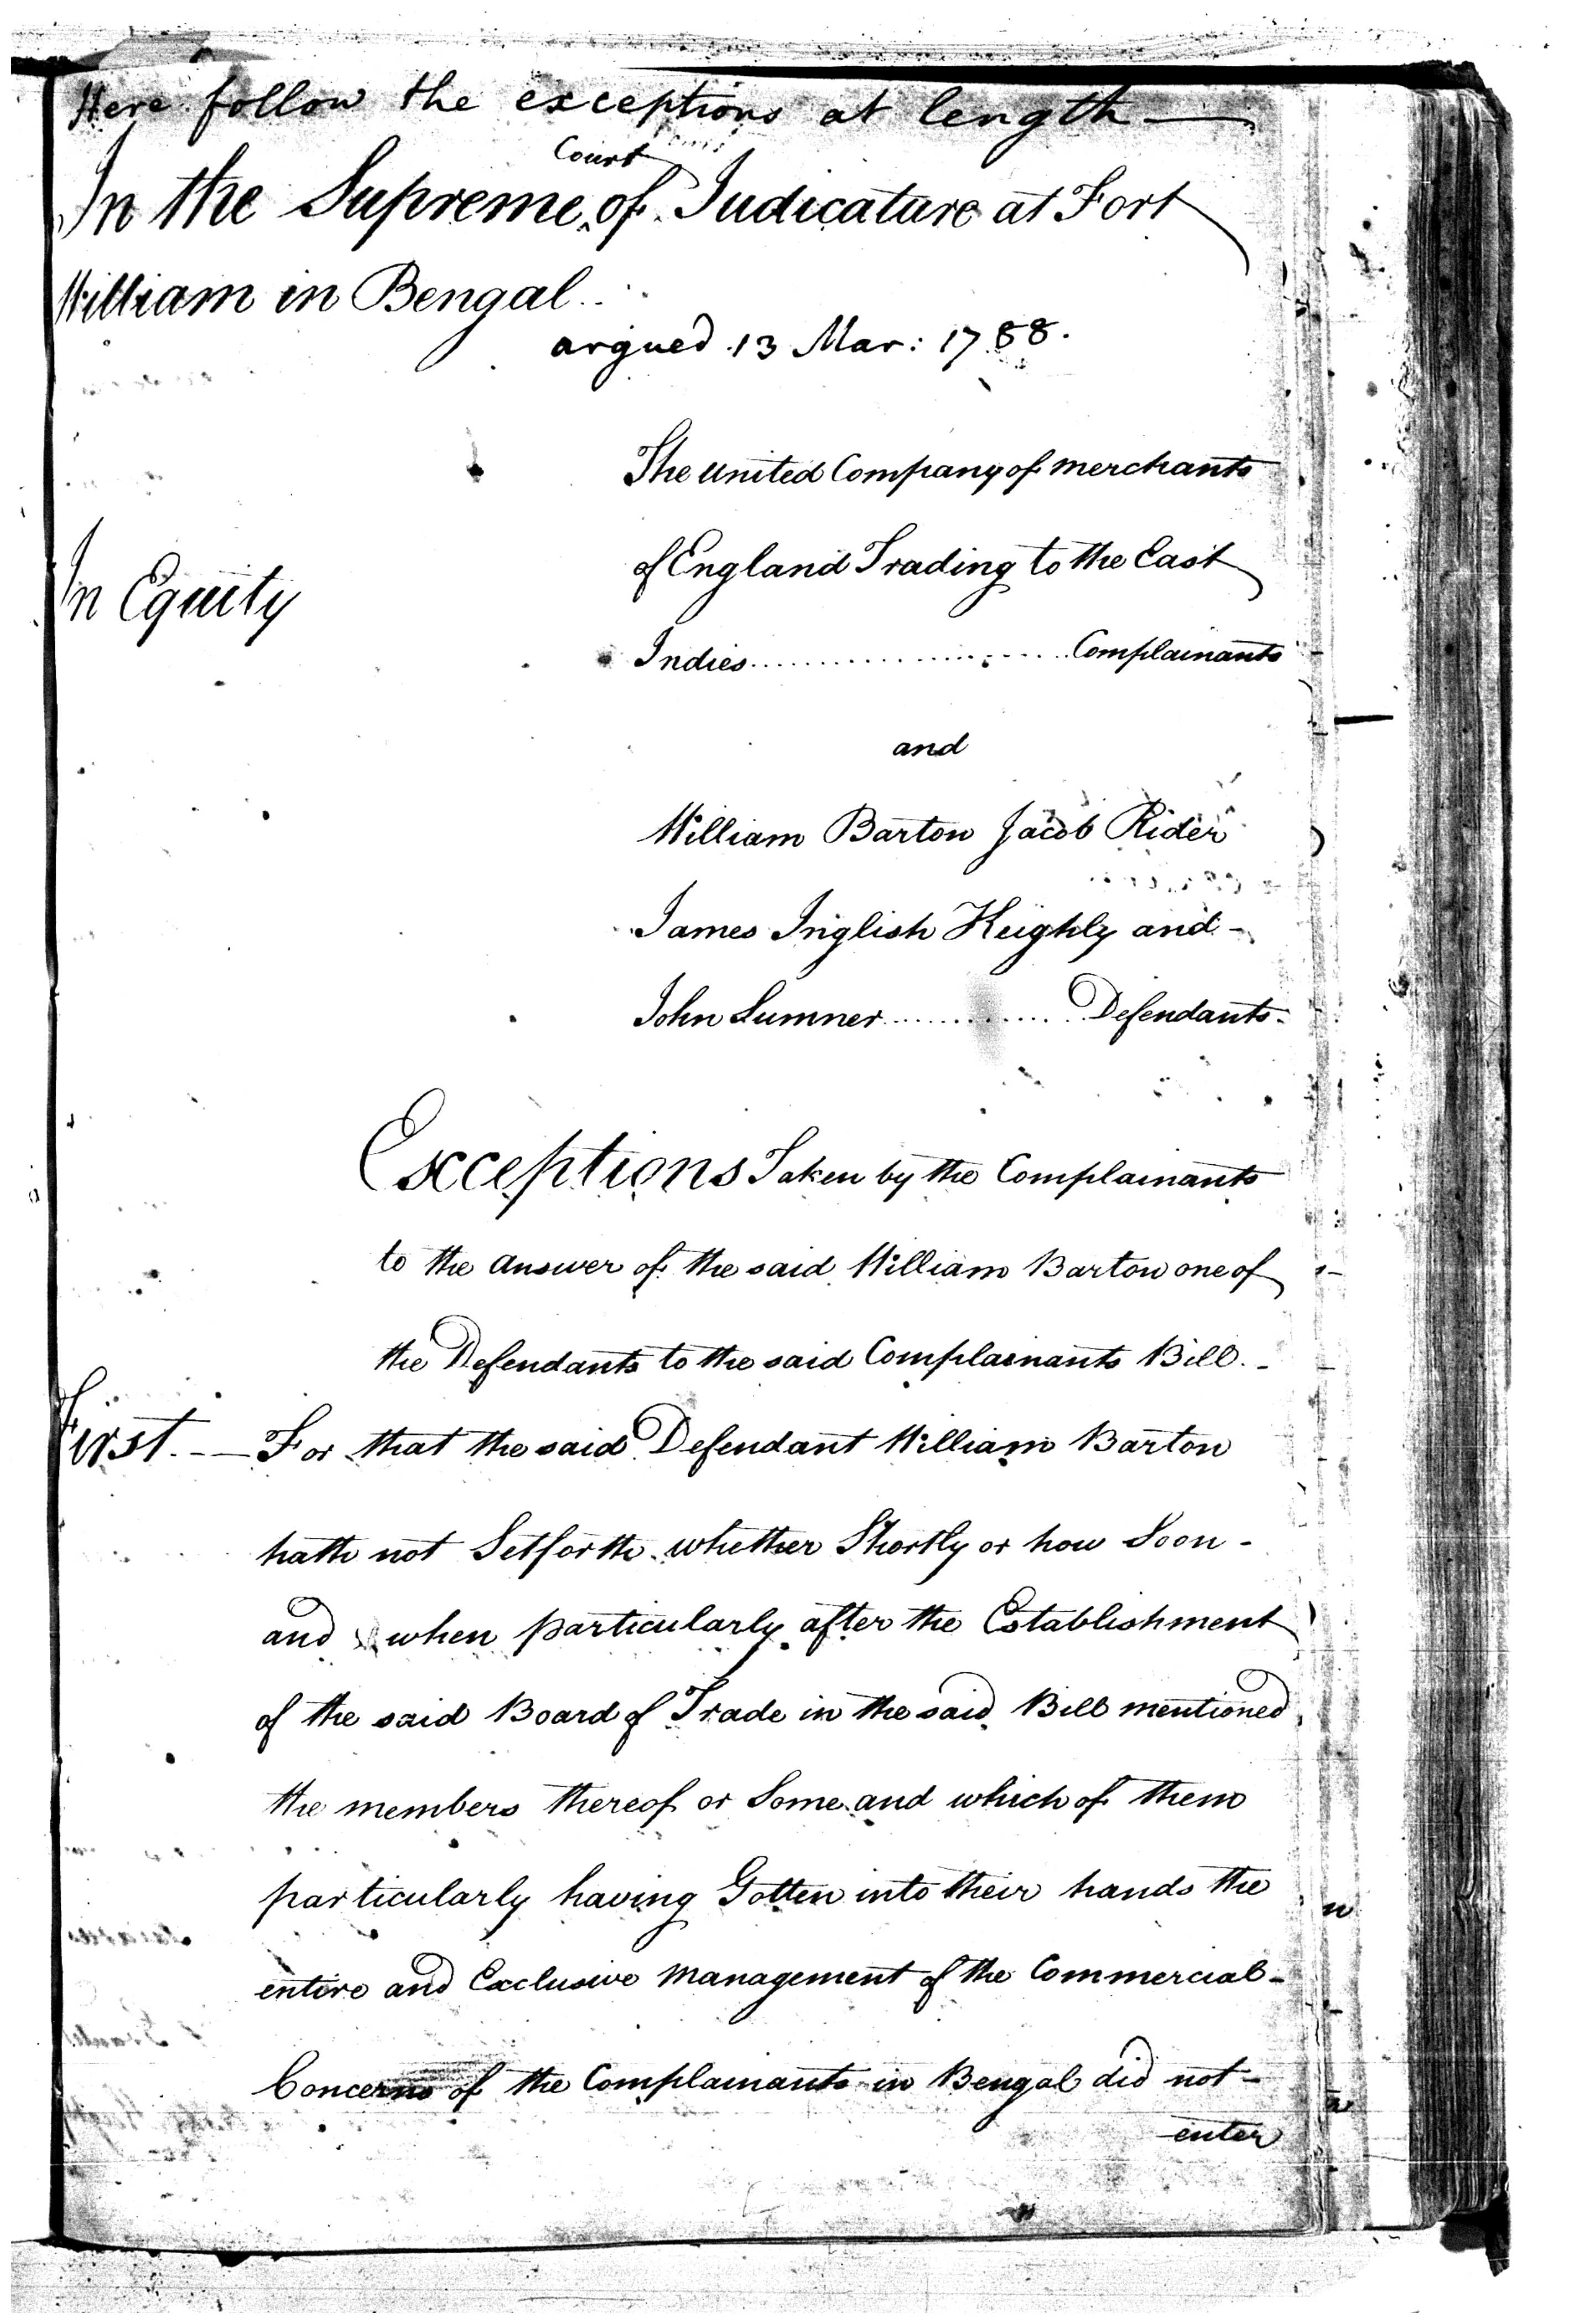 Here follow the exceptions at length —
Court
In the Supreme of Judicature at Fort
William in Bengal
argued 13 Mar: 1788.
The united Company of merchants
of England Trading to the East
In Equity
Indies ........................ Complainants
and
William Barton Jacob Rider
James Inglish Keighly and -
John Sumner ............... Defendants.
Exceptions Taken by the Complainants
to the answer of the said William Barton one of
the Defendants to the said Complainants Bill. -
First. -- For that the said Defendant William Barton
hath not Setforth whether Shortly or how Soon -
and when particularly after the Establishment
of the said Board of Trade in the said Bill mentioned
the members thereof or Some and which of them
particularly having Gotten into their hands the
entire and Exclusive management of the Commercial -
Concerns of the Complainants in Bengal did not -
enter